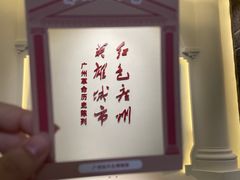 红色广州
英雄城市
广州革命历史陈列